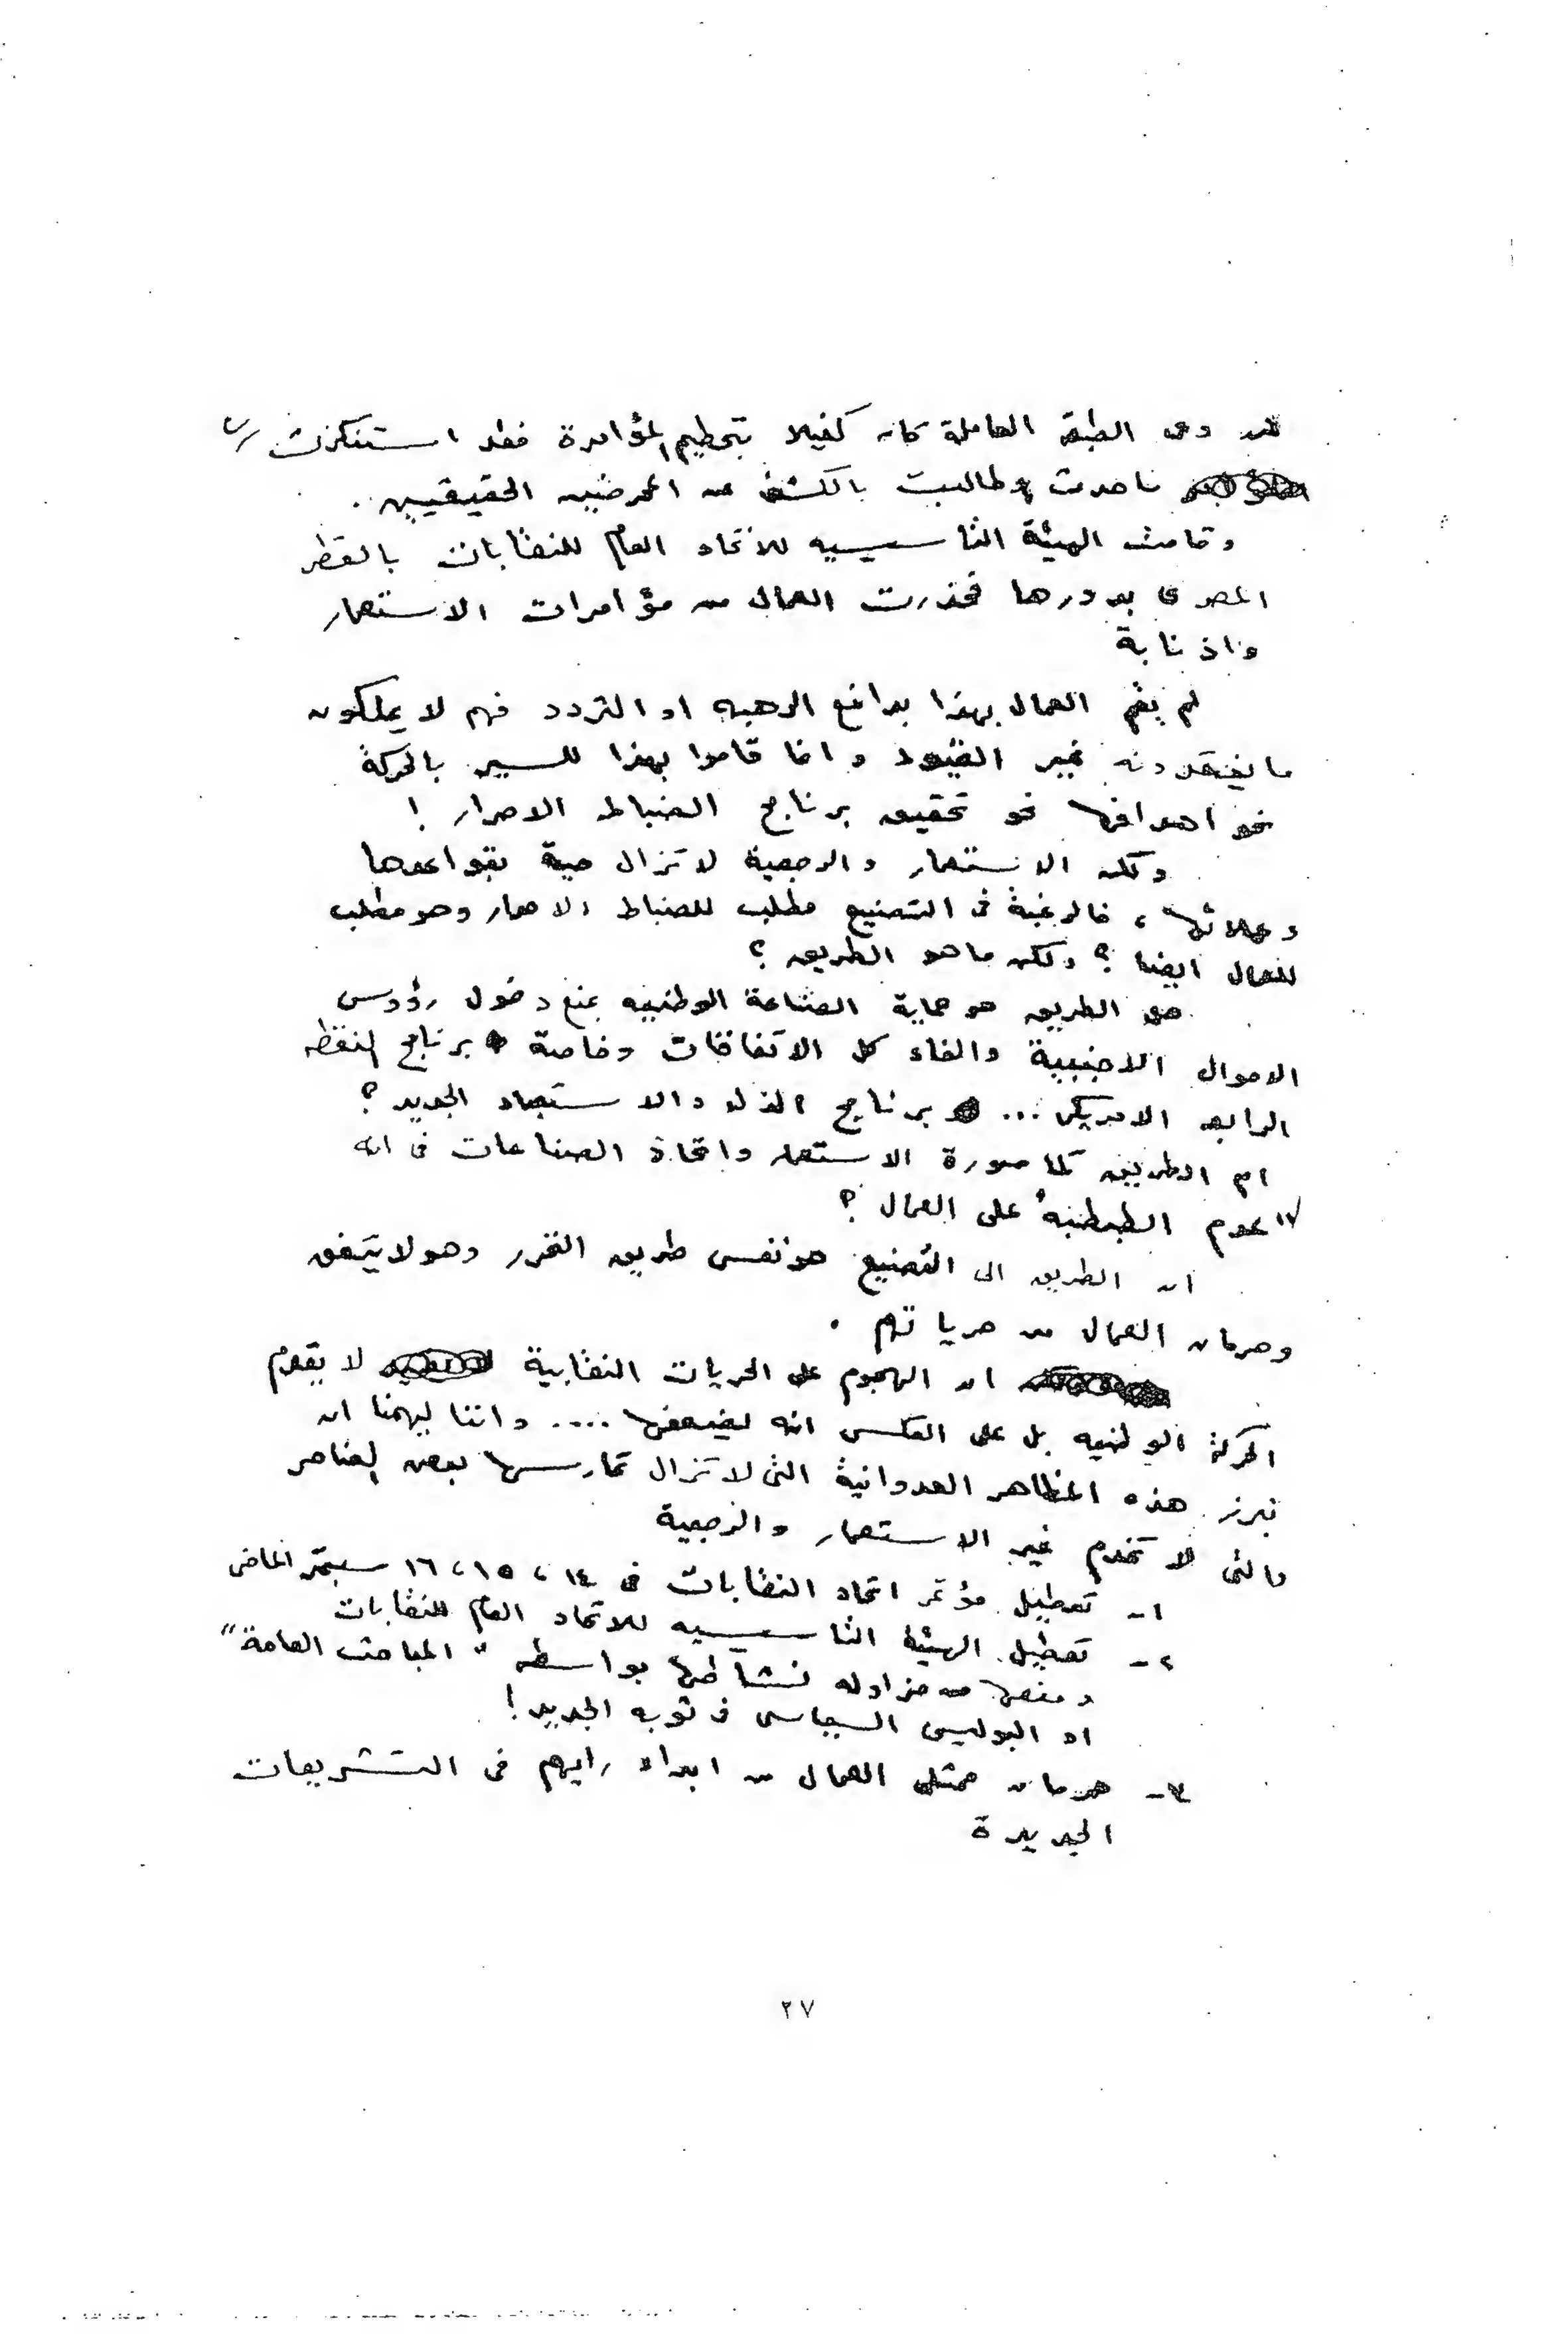 وعى الطبقة العاملة كان كفيلا بتحطيم المؤامرة فقد استنكرت
ما حدث وطالبت بالكشف عن المحرضين الحقيقيين .
وقامت الهيئة التأسيسيه للاتحاد العام للنقابات بالقطر
المصرى بدورها فحذرت العمال من مؤامرات الاستعمار
واذنابة
لم يقم العمال بهذا بدافع الرهبه او التردد فهم لا يملكون
ما يفتقدونه غير القيود وانما قاموا بهذا للسير بالحركة
نحو اهدافها نحو تحقيق برنامج الضباط الاحرار !
ولكن الاستعمار والرجعية لا تزال حية بقواعدها
وعملائها ، فالرغبة فى التصنيع مطلب للضباط الاحرار وهو مطلب
للعمال ايضا ؟ ولكن ما هو الطريق ؟
هل الطريق هو حماية الصناعة الوطنيه بمنع دخول رؤوس
الاموال الاجنبية والغاء كل الاتفاقات وخاصة برنامج النقطه
الرابعه الامريكى ... برنامج الذل والاستعباد الجديد ؟
ام الطريق صورة الاستعمار واتحاد الصناعات فى ان
على العمال ؟
ان الطريق الى التصنيع هو نفس طريق التحرر وهو لا يتفق
وحرمان العمال من حرياتهم .
ان الهجوم على الحريات النقابية لا يقدم
الحركة الوطنيه بل على العكس انه يضعفها .... واننا ليهمنا ان
نبرز هذه المظاهر العدوانية التى لا تزال تمارسها بعض العناصر
والتى لا تخدم غير الاستعمار والرجعية
١- تعطيل مؤتمر اتحاد النقابات فى ١٤ ، ١٥ ، ١٦ سبتمبر الماضى
٢- تعطيل الهيئة التأسيسيه للاتحاد العام للنقابات
ومنعها من مزاوله نشاطها بواسطه " المباحث العامة "
او البوليس السياسى فى ثوبه الجديد !
٣- حرمان ممثلى العمال من ابداء رايهم فى التشريعات
الجديدة
٢٧